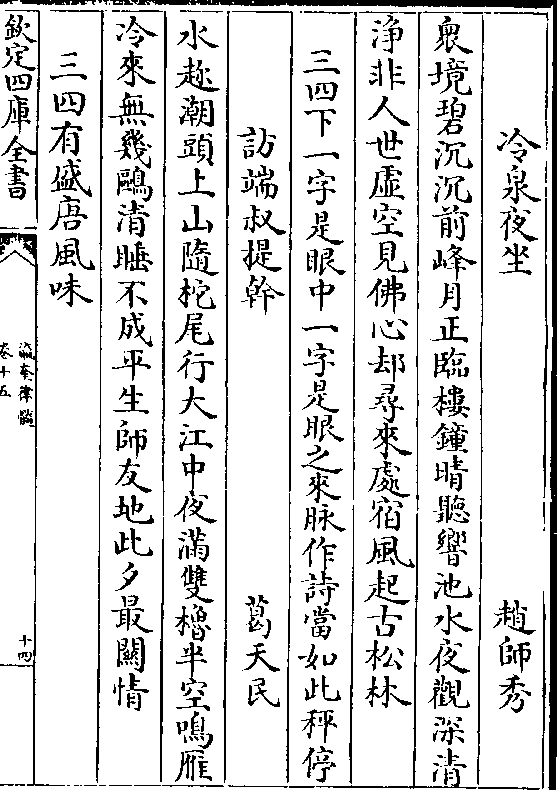 冷泉夜坐　趙師秀
衆境碧沉沉前峰月正臨樓鐘晴聽響池水夜觀深清
淨非人世虛空見佛心却尋來處宿風起古松林
三四下一字是眼中一字是眼之來脉作詩當如此秤停
訪端叔提幹　葛天民
水趂潮頭上山隨柁尾行大江中夜滿雙櫓半空鳴雁
冷來無幾鷗清睡不成平生師友地此夕最關情
三四有盛唐風味
欽定四庫全書
瀛奎律髓
卷十五
十四